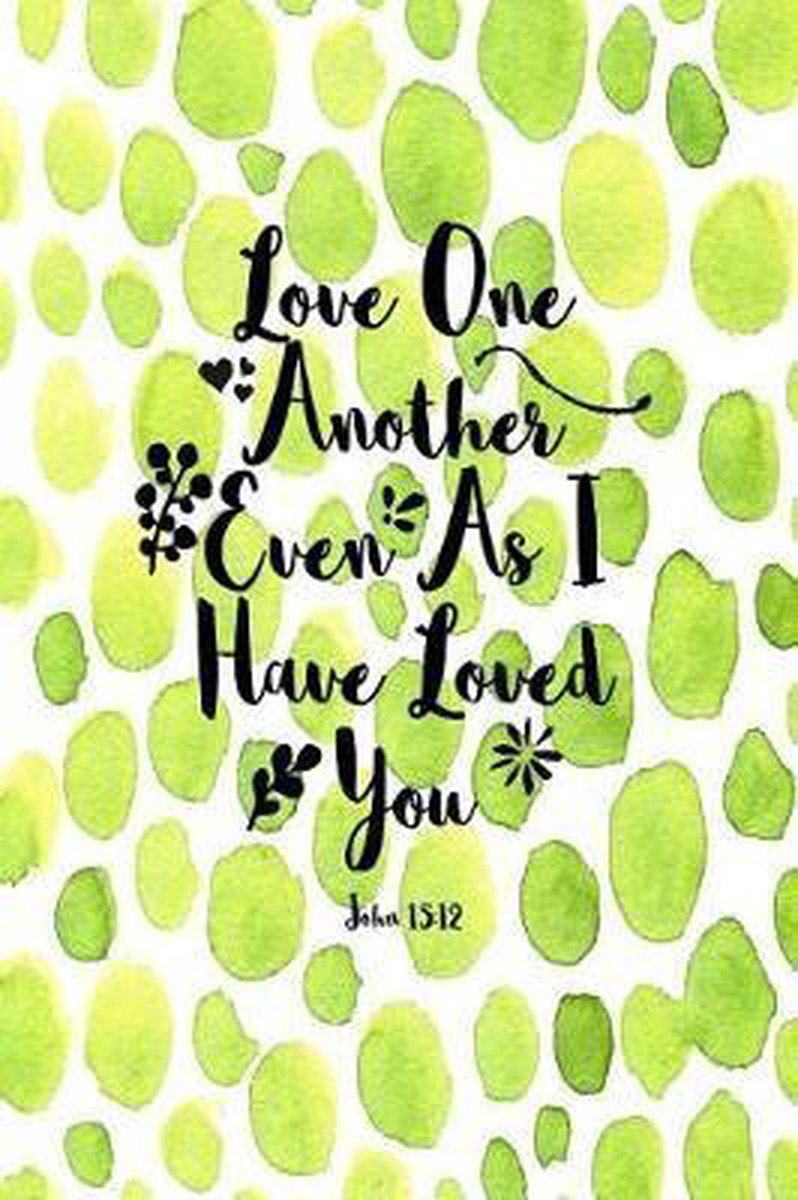 Love One
Another
Even As I
Have Loved
You
John 15:12